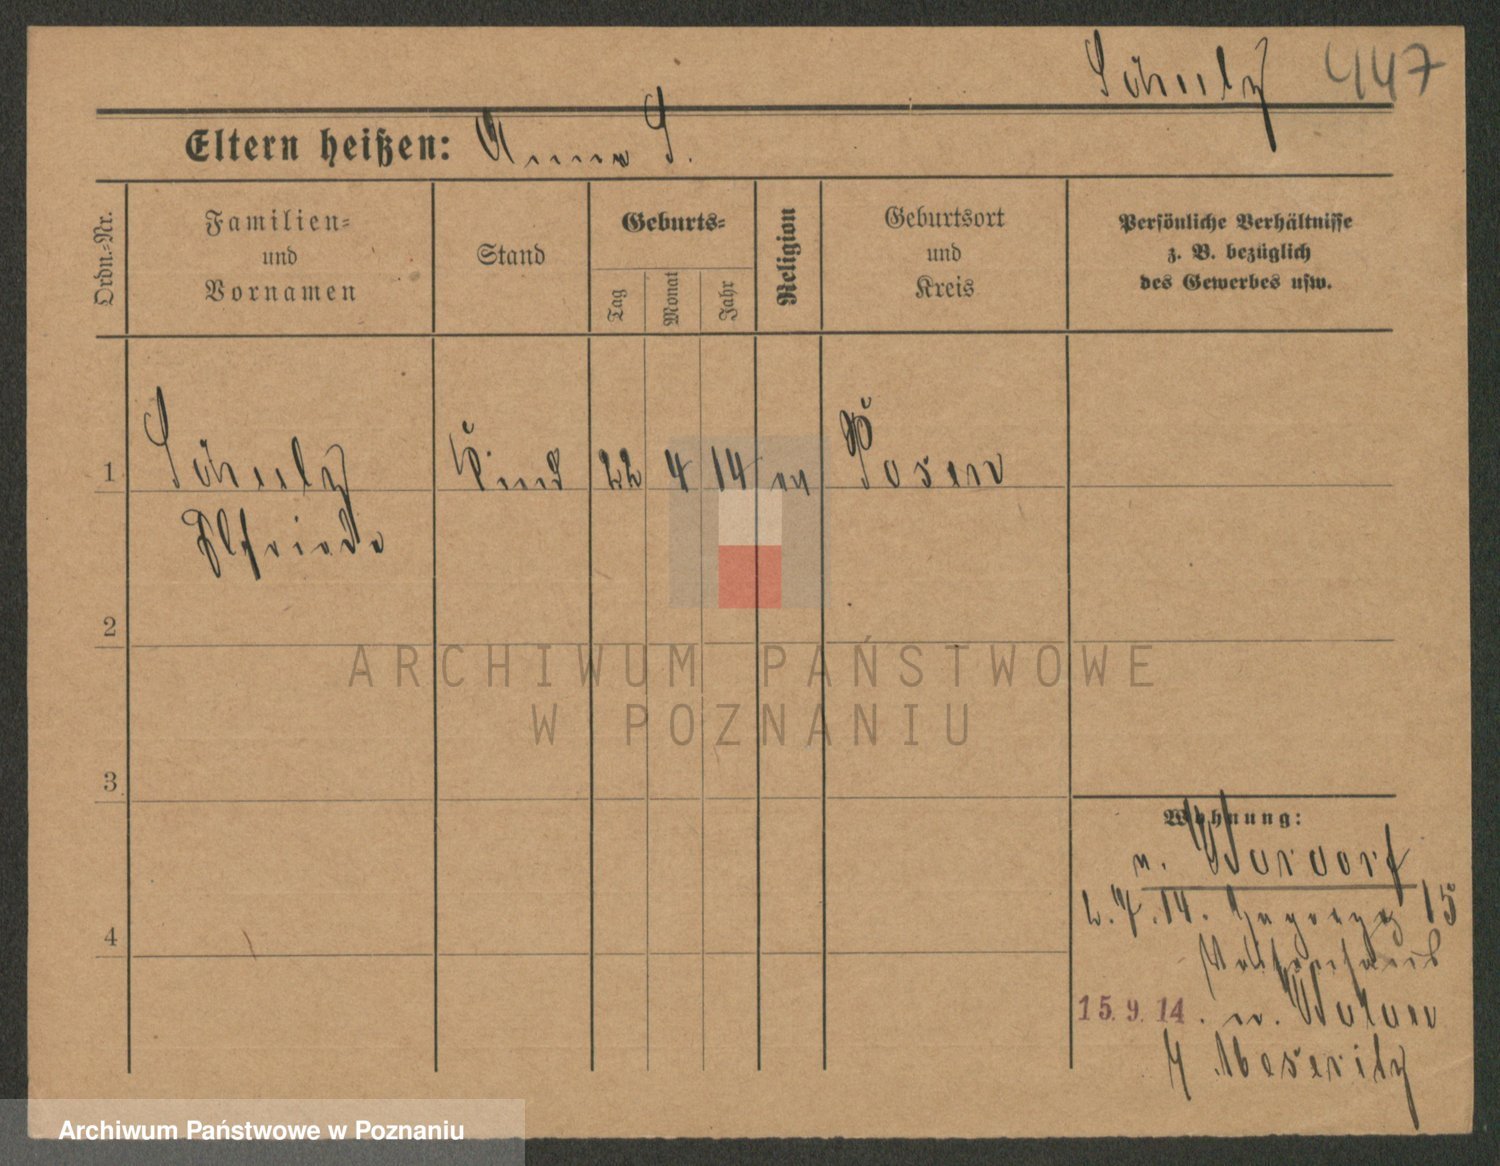 Schulz 447
Eltern heißen: Anna S.
Ordn.-Nr.
Familien-
und
Vornamen
Stand
Geburts-
Tag
Monat
Jahr
Religion
Geburtsort
und
Kreis
Persönliche Verhältnisse
z. B. bezüglich
des Gewerbes usw.
1 Schulz Kind 22 4 14 ev Posen
Elfriede
2
3
4
Wohnung:
n.
2. 7. 14. 15
15.9.14. n.
Meseritz
ARCHIWUM PAŃSTWOWE
W POZNANIU
Archiwum Państwowe w Poznaniu